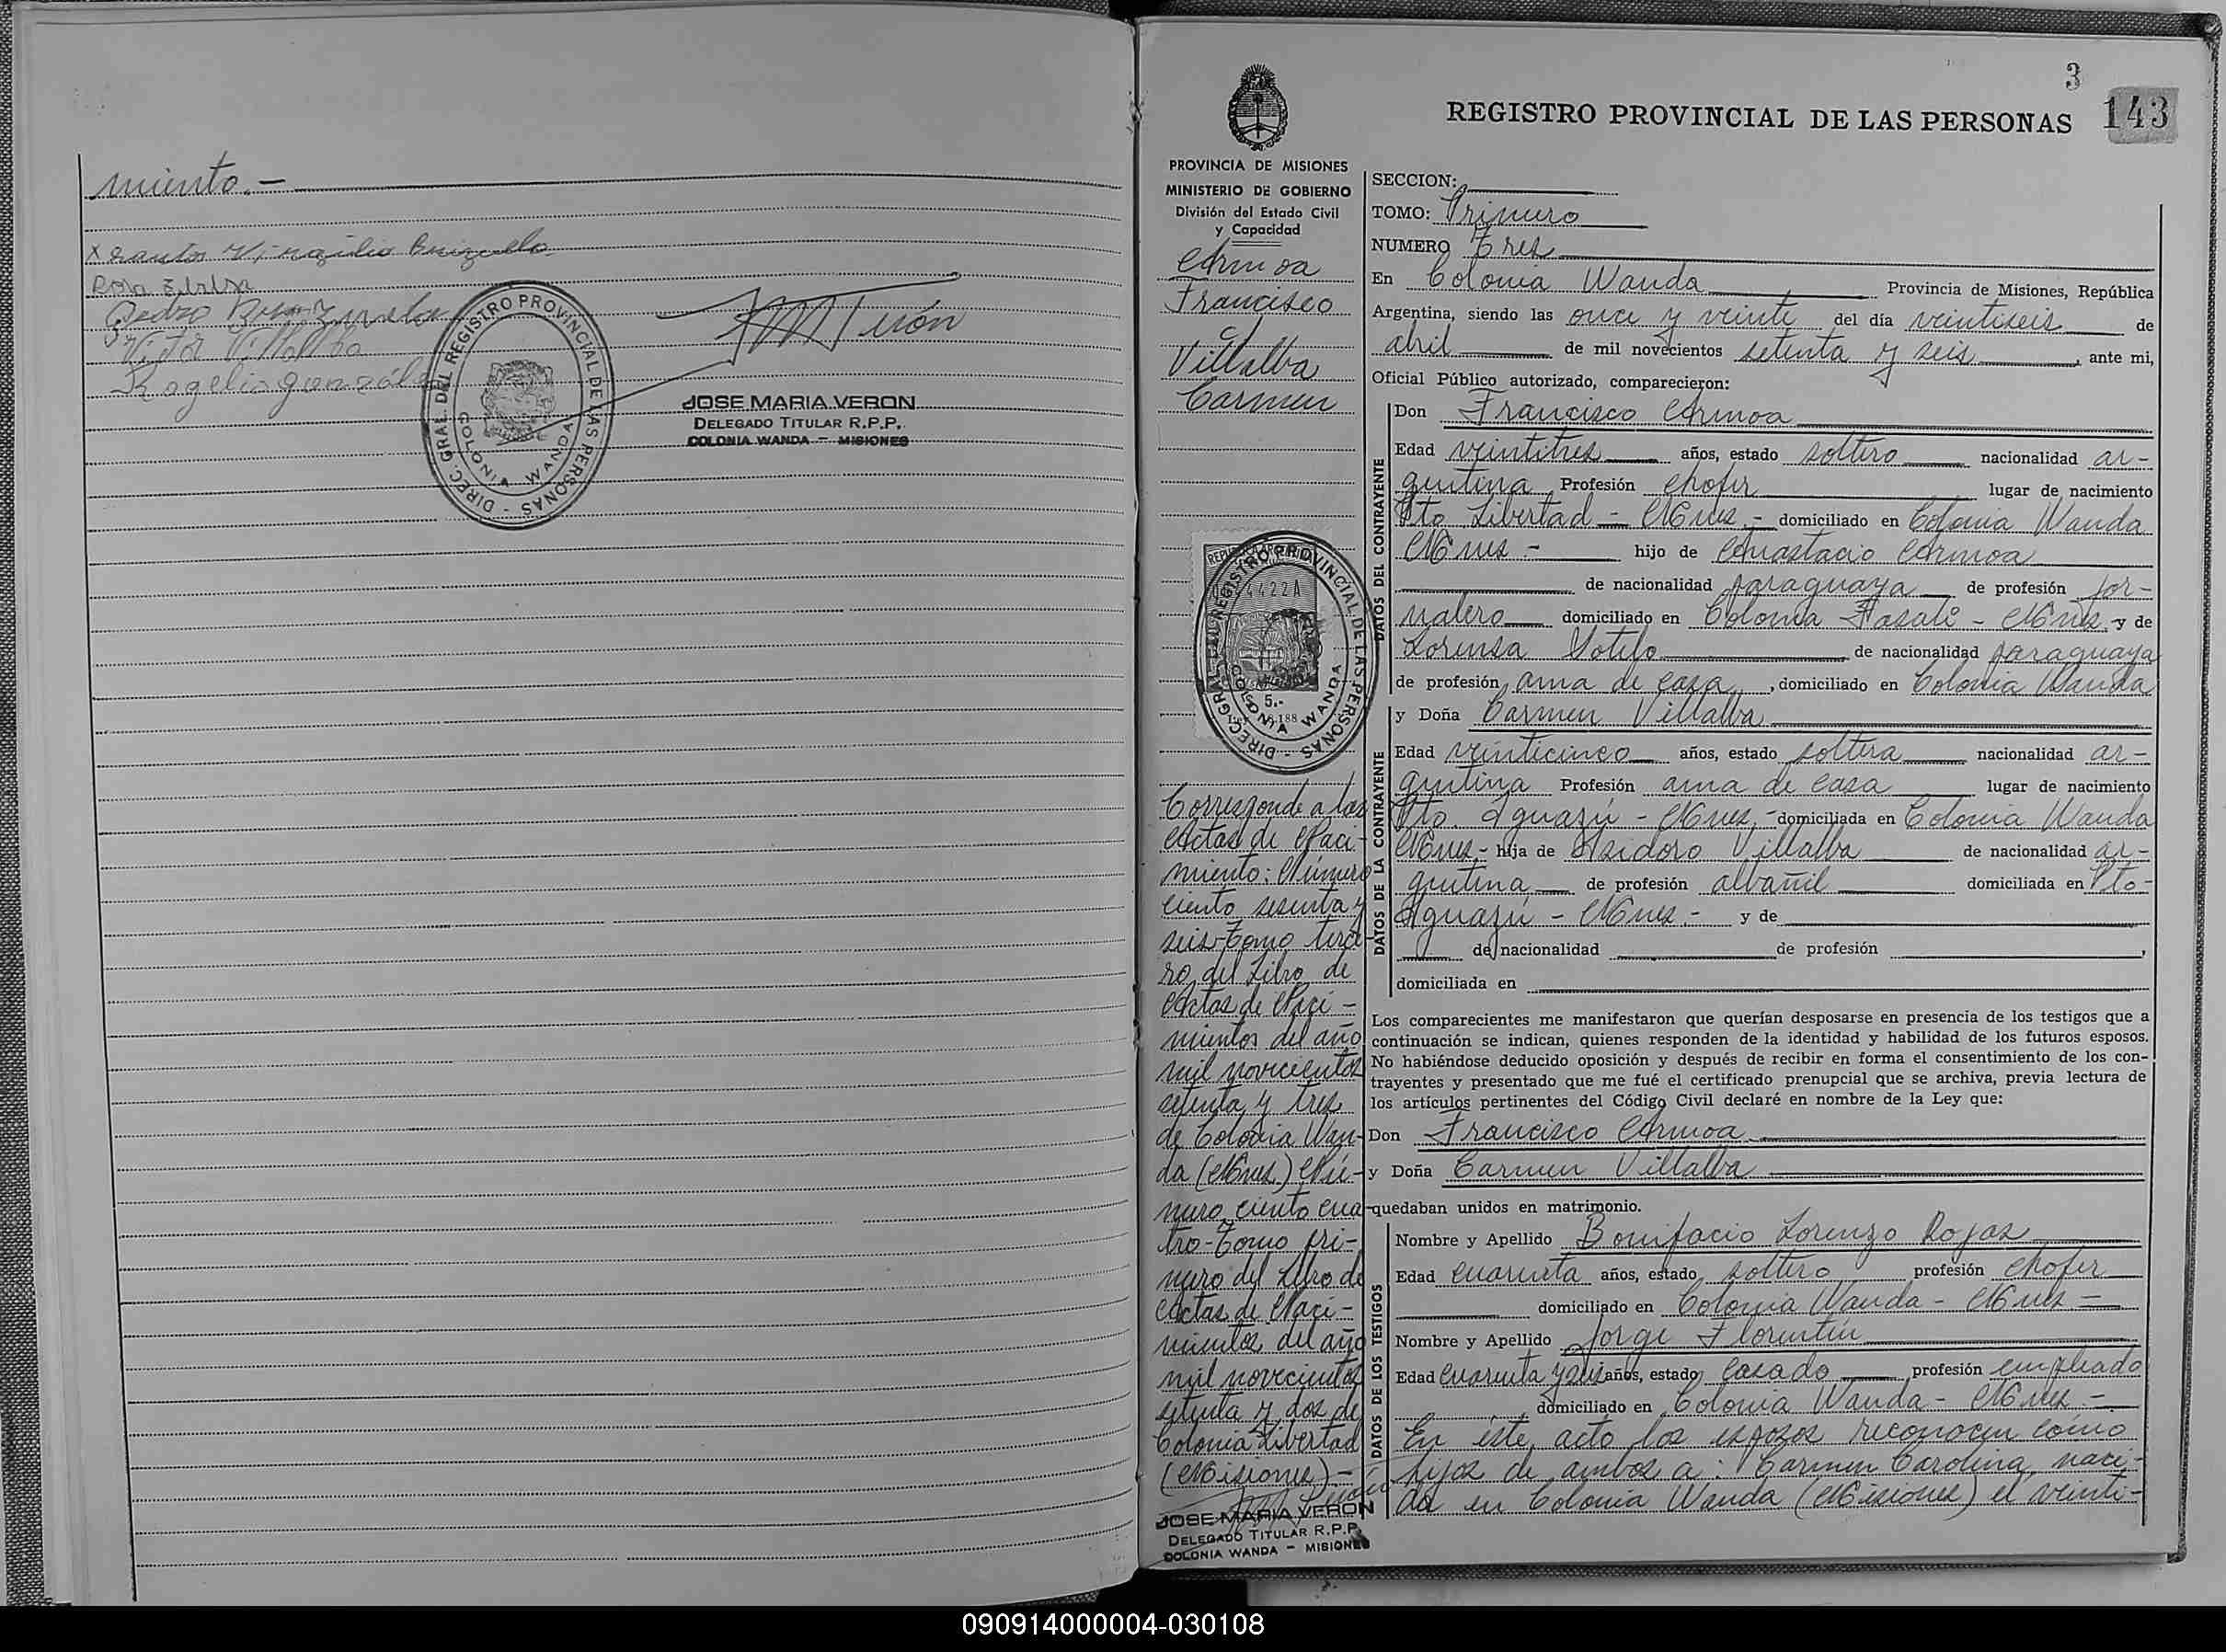 miento.-
x Santos Virgilio Brizuela
Rosa Elalsa
Pedro Brizuela
Victor Villalba
Rogelio González
DIREC. GRAL. DEL REGISTRO PROVINCIAL DE LAS PERSONAS -
COLONIA WANDA
Verón
JOSE MARIA VERON
DELEGADO TITULAR R.P.P.
COLONIA WANDA - MISIONES
3
REGISTRO PROVINCIAL DE LAS PERSONAS 143
PROVINCIA DE MISIONES
MINISTERIO DE GOBIERNO
División del Estado Civil
y Capacidad
Armoa
Francisco
c/
Villalba
Carmen
4422A
DIREC. GRAL. DEL REGISTRO PROVINCIAL DE LAS PERSONAS -
COLONIA WANDA
5.-
Corresponde a las
Actas de Naci-
miento: Número
ciento sesenta y
seis-Tomo terce-
ro del Libro de
Actas de Naci-
mientos del año
mil novecientos
setenta y tres
de Colonia Wan-
da (Mnes.) Nú-
mero ciento cua-
tro-Tomo pri-
mero del Libro de
Actas de Naci-
mientos del año
mil novecientos
setenta y dos de
Colonia Libertad
(Misiones)-
Verón
JOSE MARIA VERON
DELEGADO TITULAR R.P.P.
COLONIA WANDA - MISIONES
SECCION:
TOMO: Primero
NUMERO Tres
En Colonia Wanda Provincia de Misiones, República
Argentina, siendo las once y veinte del día veintiseis de
abril de mil novecientos setenta y seis, ante mi,
Oficial Público autorizado, comparecieron:
DATOS DEL CONTRAYENTE
Don Francisco Armoa
Edad veintitres años, estado soltero nacionalidad ar-
gentina Profesión chofer lugar de nacimiento
Pto Libertad - Mnes.- domiciliado en Colonia Wanda
Mnes - hijo de Anastacio Armoa
de nacionalidad paraguaya de profesión jor-
nalero domiciliado en Colonia Fasali - Mnes. y de
Lorensa Sotelo de nacionalidad paraguaya
de profesión ama de casa, domiciliado en Colonia Wanda
DATOS DE LA CONTRAYENTE
y Doña Carmen Villalba
Edad veinticinco años, estado soltera nacionalidad ar-
gentina Profesión ama de casa lugar de nacimiento
Pto. Iguazú - Mnes.- domiciliada en Colonia Wanda
Mnes.- hija de Isidoro Villalba de nacionalidad ar-
gentina de profesión albañil domiciliada en Pto-
Iguazú - Mnes.- y de
de nacionalidad de profesión ,
domiciliada en
Los comparecientes me manifestaron que querían desposarse en presencia de los testigos que a
continuación se indican, quienes responden de la identidad y habilidad de los futuros esposos.
No habiéndose deducido oposición y después de recibir en forma el consentimiento de los con-
trayentes y presentado que me fué el certificado prenupcial que se archiva, previa lectura de
los artículos pertinentes del Código Civil declaré en nombre de la Ley que:
Don Francisco Armoa
y Doña Carmen Villalba
quedaban unidos en matrimonio.
DATOS DE LOS TESTIGOS
Nombre y Apellido Bonifacio Lorenzo Rojas
Edad cuarenta años, estado soltero profesión chofer
domiciliado en Colonia Wanda - Mnes -
Nombre y Apellido Jorge Florentin
Edad cuarenta y seis años, estado casado profesión empleado
domiciliado en Colonia Wanda - Mnes -
En este acto los esposos reconocen como
hijos de ambos a: Carmen Carolina, naci-
da en Colonia Wanda (Misiones) el veinti-
090914000004-030108